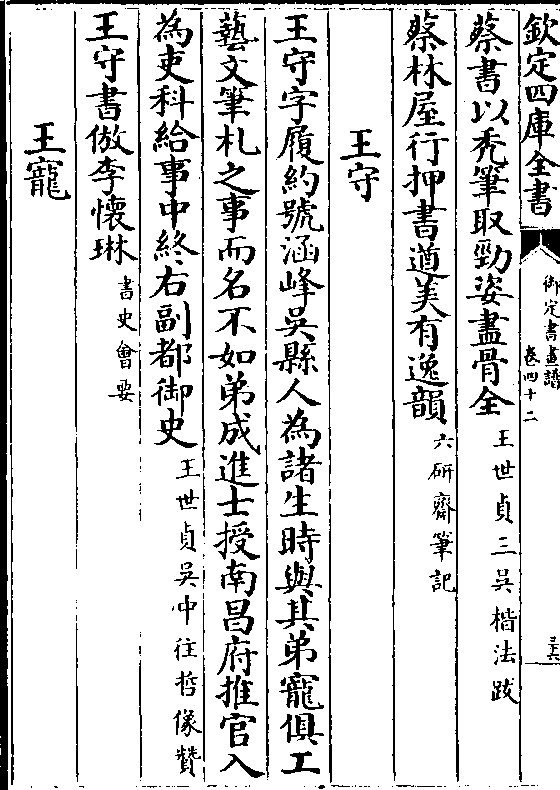 欽定四庫全書
御定書畫譜
卷四十二
三六
蔡書以禿筆取勁姿盡骨全王世貞三吳楷法跋
蔡林屋行押書遒美有逸韻六研齋筆記
王守
王守字履約號涵峰吳縣人為諸生時與其弟寵俱工
藝文筆札之事而名不如弟成進士授南昌府推官入
為吏科給事中終右副都御史王世貞吳中往哲像贊
王守書倣李懷琳書史會要
王寵